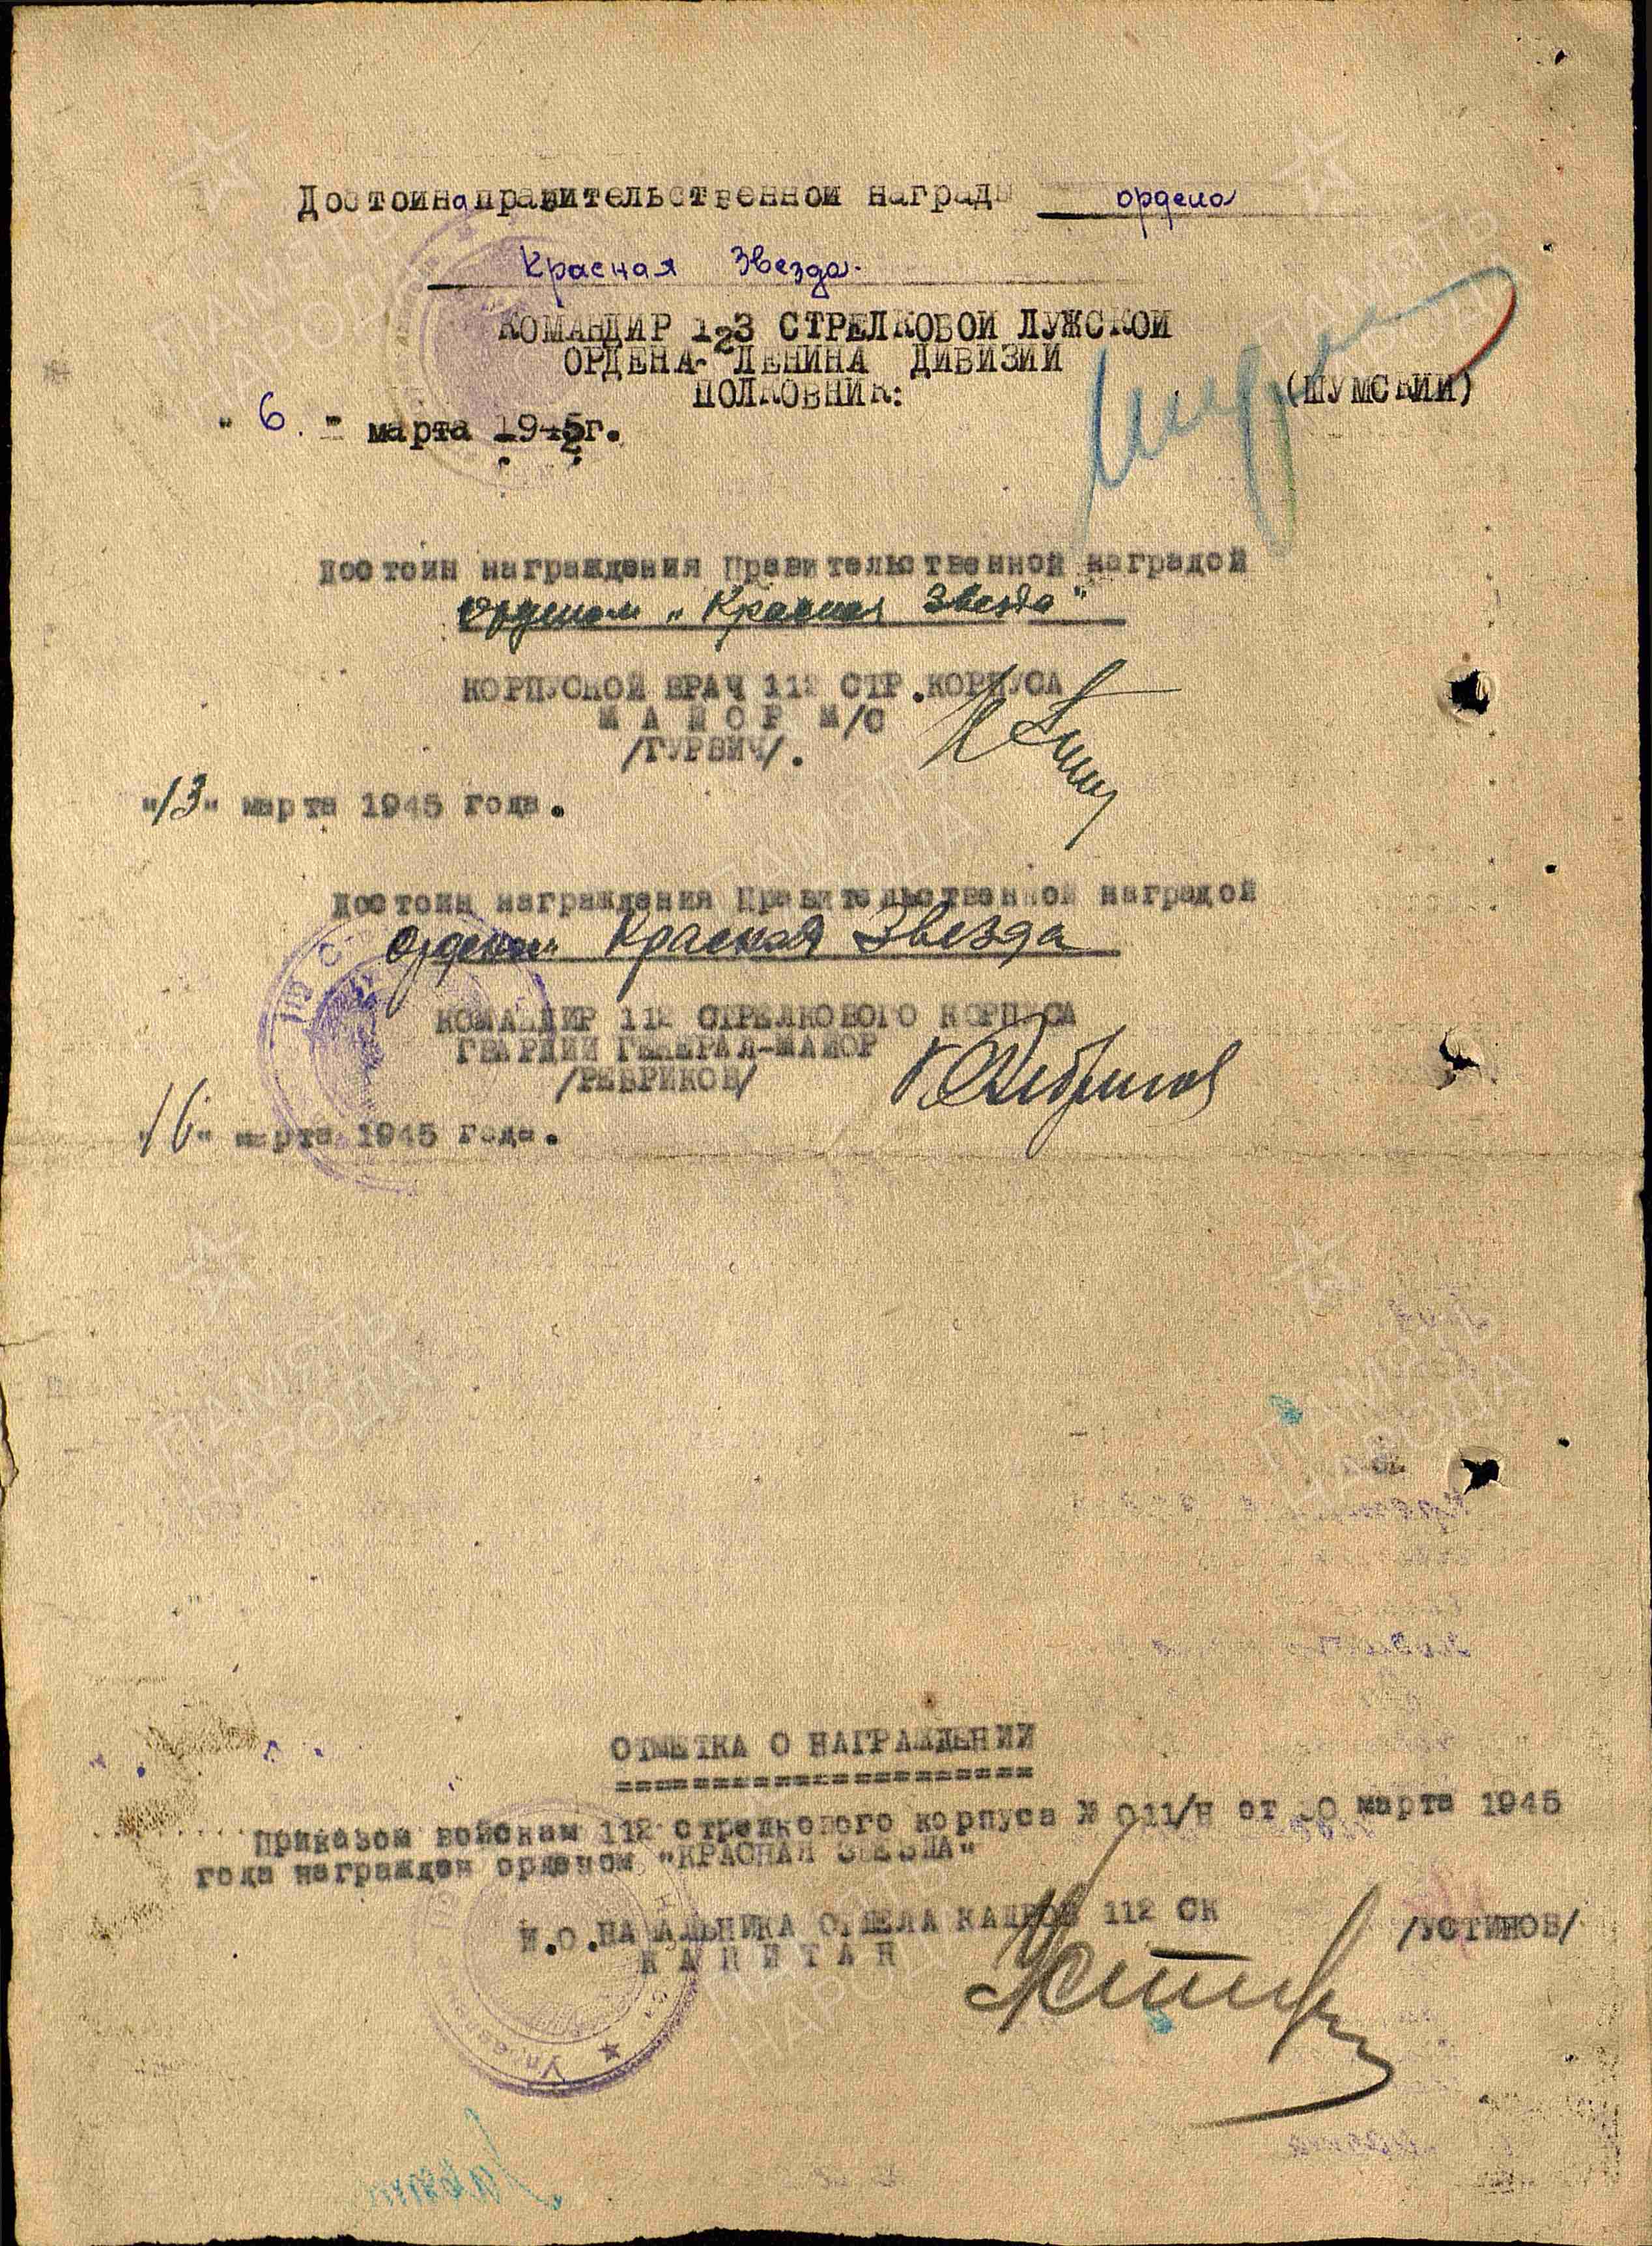 Достойна правительственной награды ордена
Красная Звезда.
КОМАНДИР 123 СТРЕЛКОВОЙ ЛУЖСКОЙ
ОРДЕНА- ЛЕНИНА ДИВИЗИИ
ПОЛКОВНИК: (ШУМСКИЙ)
" 6. " марта 1945г.
Достоин награждения Правительственной наградой
Орденом "Красная Звезда"
КОРПУСНОЙ ВРАЧ 112 СТР.КОРПУСА
МАЙОР М/С
/ГУРВИЧ/.
"13" марта 1945 года.
Достоин награждения Правительственной наградой
Орденом Красная Звезда
КОМАНДИР 112 СТРЕЛКОВОГО КОРПУСА
ГВАРДИИ ГЕНЕРАЛ-МАЙОР
/РЕБРИКОВ/
"16" марта 1945 года.
ОТМЕТКА О НАГРАЖДЕНИИ
======================
Приказом войскам 112 стрелкового корпуса № 011/Н от 30 марта 1945
года награжден орденом "КРАСНАЯ ЗВЕЗДА"
И.О.НАЧАЛЬНИКА ОТДЕЛА КАДРОВ 112 СК
КАПИТАН /УСТИНОВ/
ПАМЯТЬ
НАРОДА